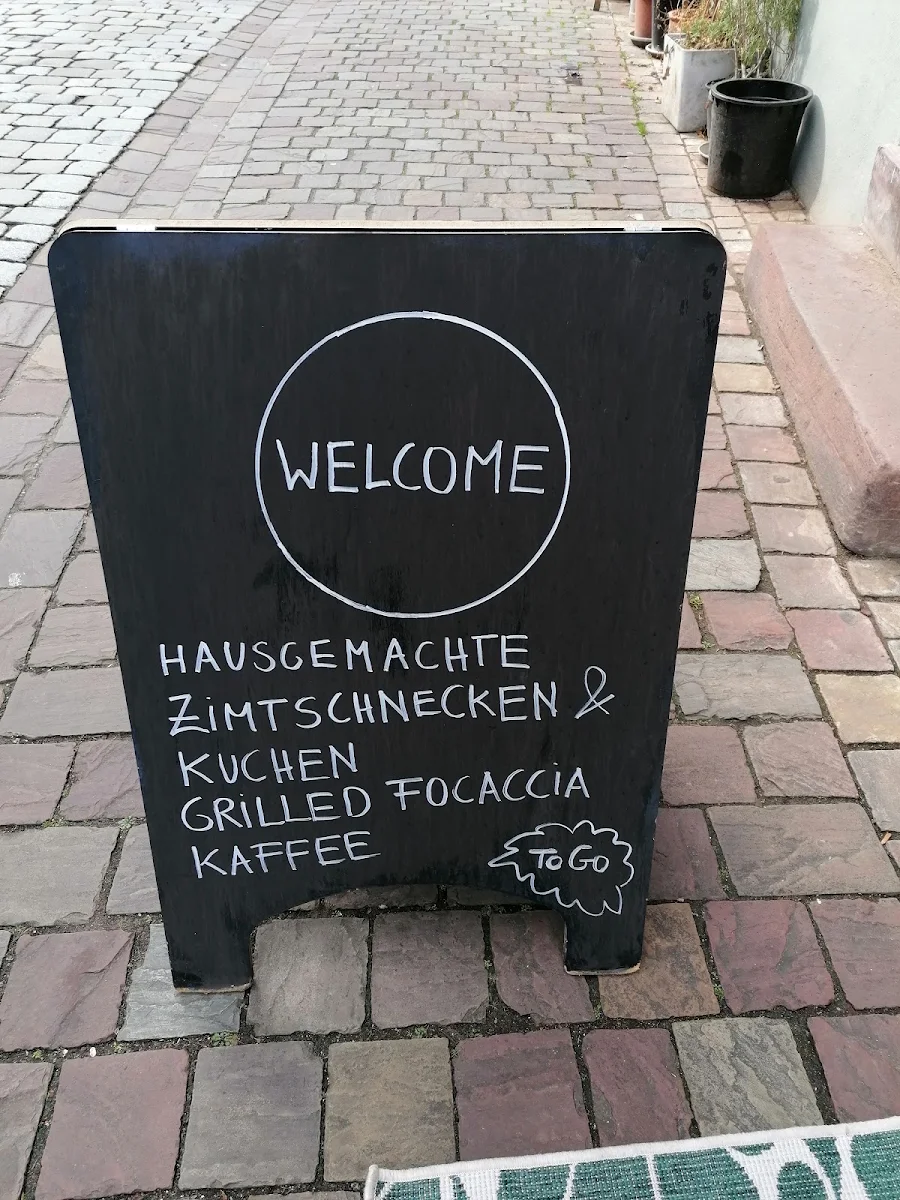 WELCOME
HAUSGEMACHTE
ZiMTSCHNECKEN &
KUCHEN
GRiLLED FOCACCiA
KAFFEE
To Go